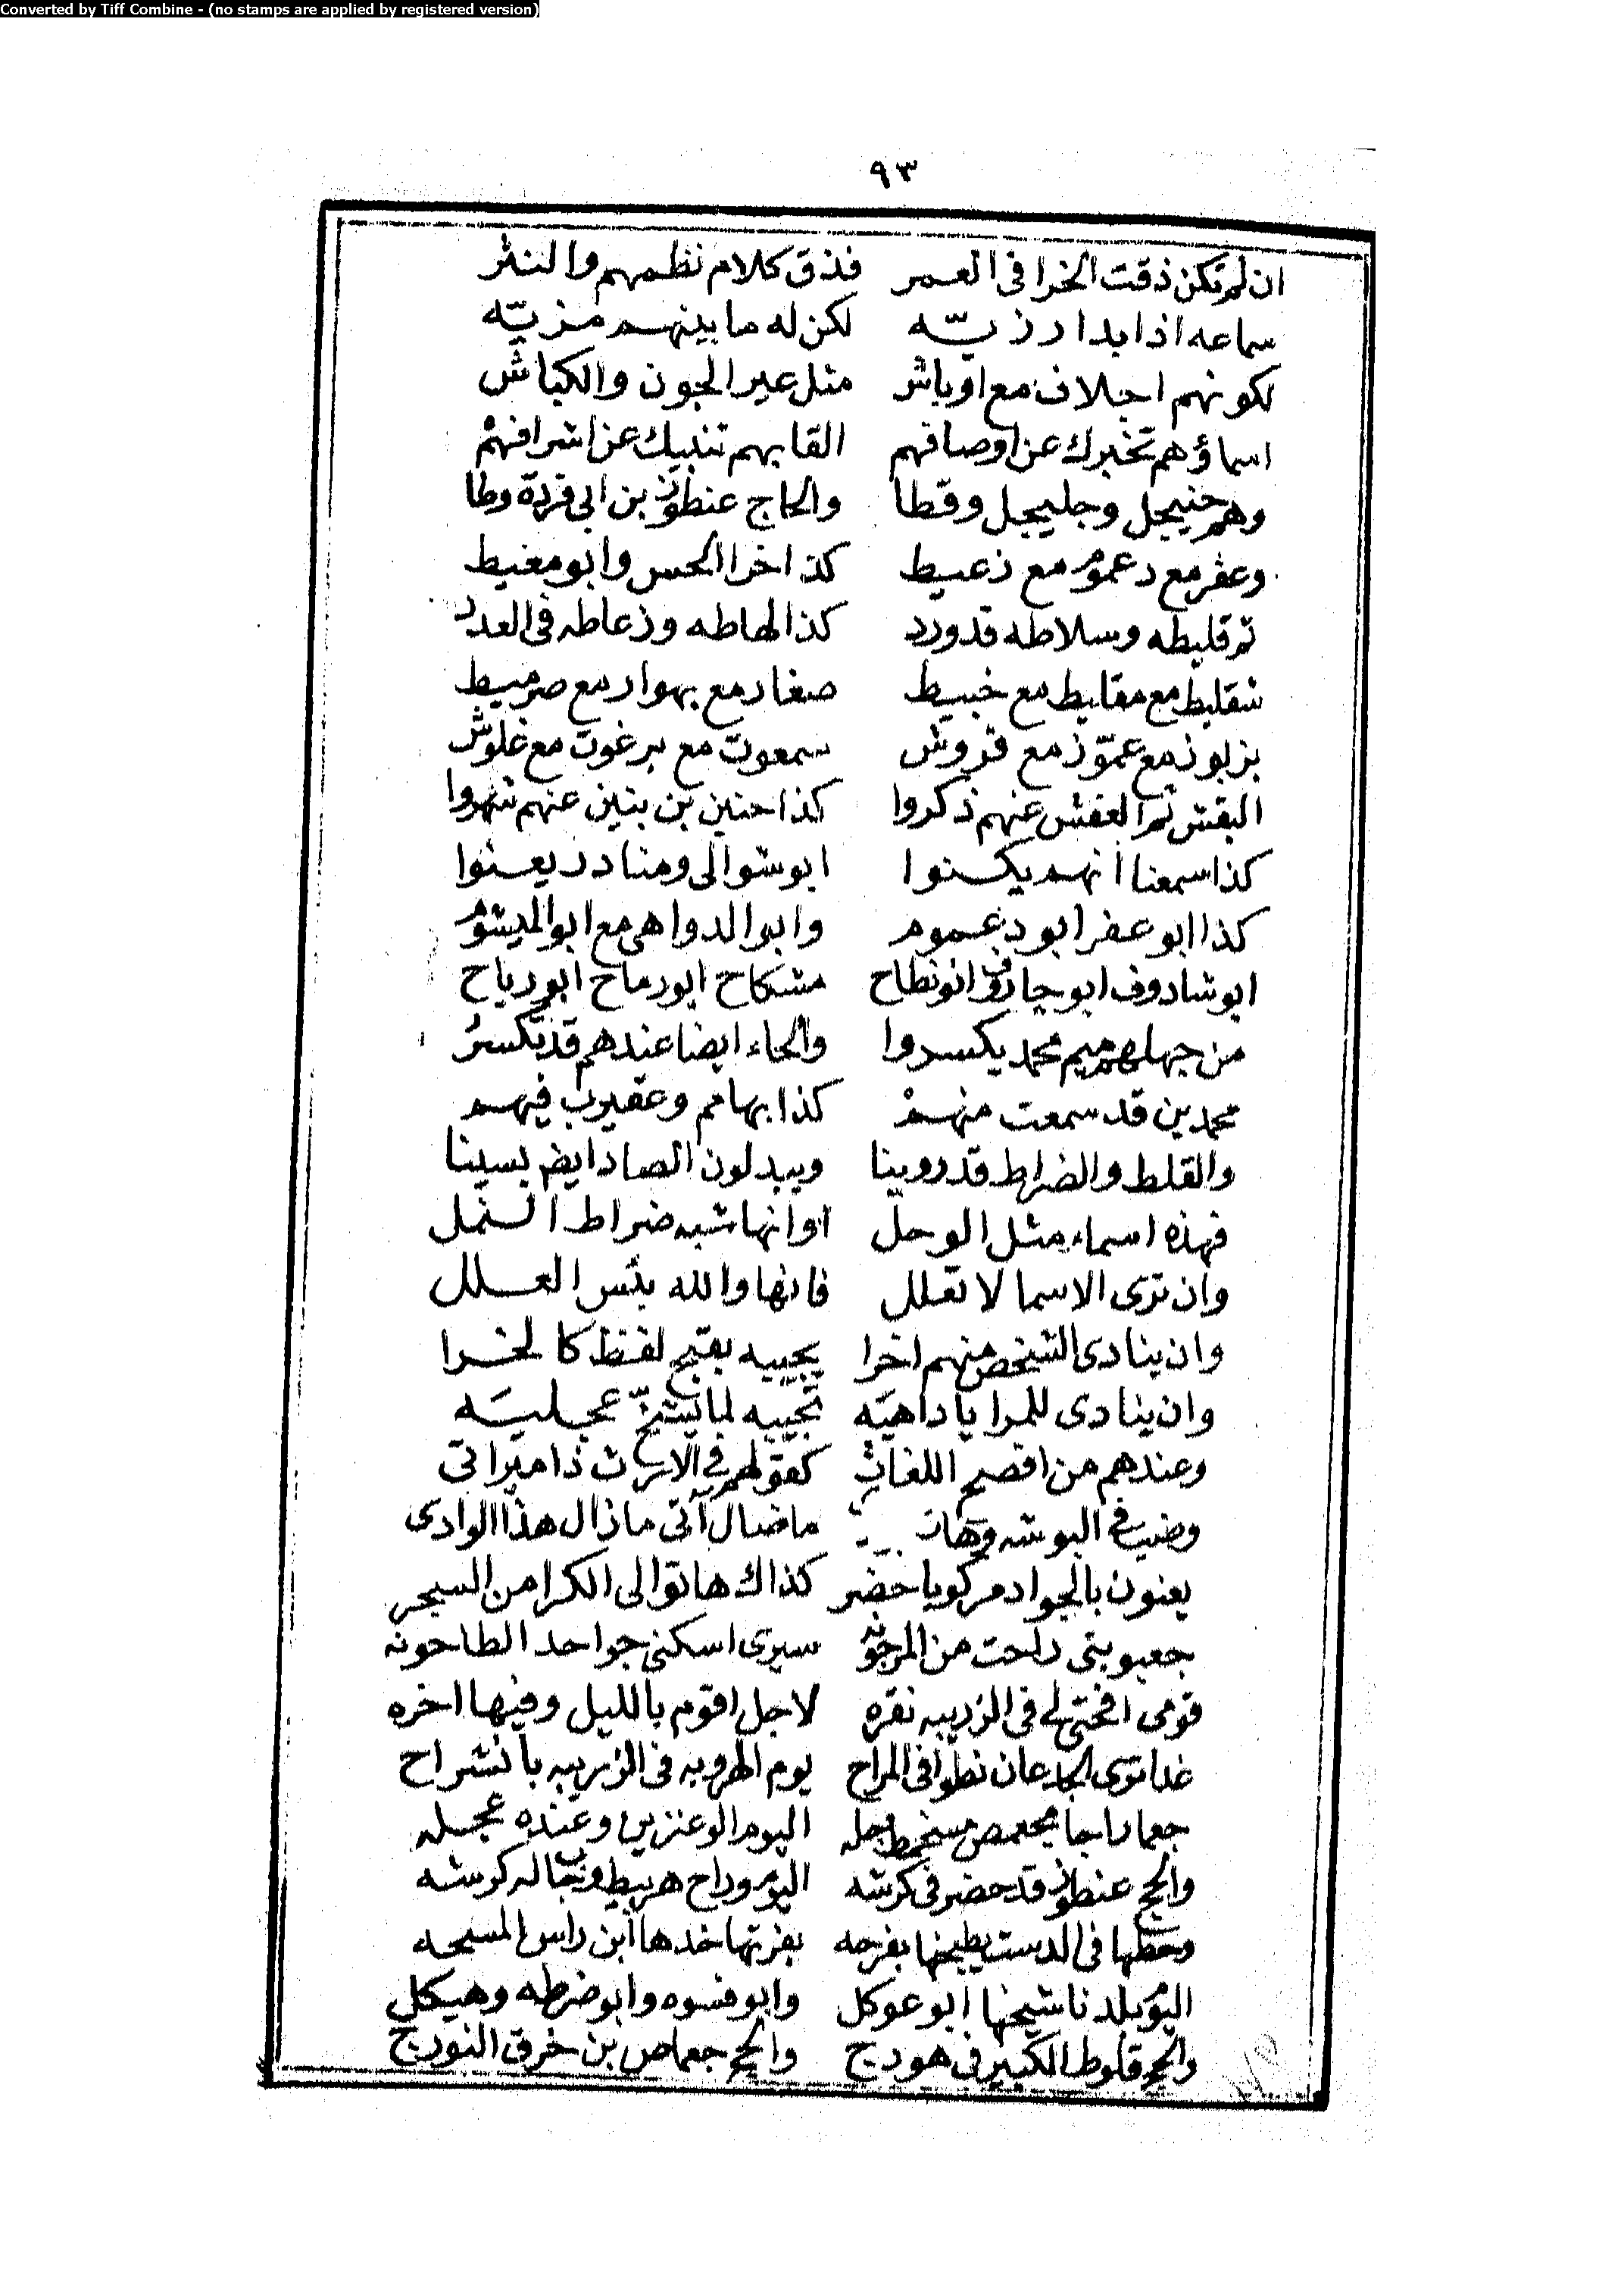 Converted by Tiff Combine - (no stamps are applied by registered version)
٩٣
ان لم تكن ذقت الخرا فى العمر فذق كلام نظمهم والنثر
سماعه اذا بدا رزيّه لكن له ما بينهم مزيّه
لكونهم اجلاف مع اوباش مثل عير الجون والكباش
اسماؤهم تخبرك عن اوصافهم القابهم تنبيك عن اشرافهم
وهم جنيجل وجليجل وقطا والحاج عنطوز بن ابى قردة وطا
وعفر مع دعموم مع زعيط كذا خرا الحس وابو معيط
ثم قليطه وسلاطه قد ورد كذا لهاطه وزعاطه فى العدد
شقليط مع مقليط مع خبيط صغار مع بهوار مع صرميط
بزبوز مع عموّز مع قروش سمعوت مع برغوت مع غلوش
البقش ثم العفش عنهم ذكروا كذا حنين بن بنين عنهم شهروا
كذا سمعنا انهم يكنوا ابو شوالى ومنادر يعنوا
كذا ابو عفر ابو دعموم وابو الدواهى مع ابو الميشوم
ابو شادوف ابو جاروف ابو نطاح مشكاح ابو رماح ابو رياح
من جهلهم ميم محمد يكسروا والحاء ايضا عندهم قد تكسر
محمدين قد سمعت منهم كذا بهامم وعقيرب فيهم
والقلط والضراط قد روينا ويبدلون الصاد ايض بسينا
فهذه اسماء مثل الوحل اوانها شبه ضراط النمل
وان ترى الاسما لا تعلل فانها والله بئس العلل
وان ينادى الشخص منهم اخرا يجيبه بقبيح لفظ كالخرا
وان ينادى للمرا يا داهيه تجيبه لما يشخّ عجليه
وعندهم من افصح اللغات كقولهم فى الارث ذا ميراتى
وضيب فى البوشه وهات ما ضال آتى مازال هذا الوادى
يعنون بالجواد مركوبا حضر كذاك هاتوا لى الكرا من السيجر
جعبوبتى راحت من المرجونه سيرى اسكنى جوا حد الطاحونه
قومى افحتى لى فى الزريبه نقره لاجل اقوم بالليل وفيها اخره
غدا ترى الجدعان نطوا فى المراح يوم الهروبه فى الزريبه بانشراح
اليوم ابو عنزين وعنده عجله
والحج عنطوز قد حضر فى كرشه اليوم وراح هربيط وجاله كرشه
وحطها فى الدست يطبخها بفرحه بفرتها خدها ابن راس المسيحه
اليوم بلدنا شيخها ابو عوكل وابو فسوه وابو ضرطه وهيكل
والحج قلوط الكبير فى هودج والحج جعماص بن خرق النورج